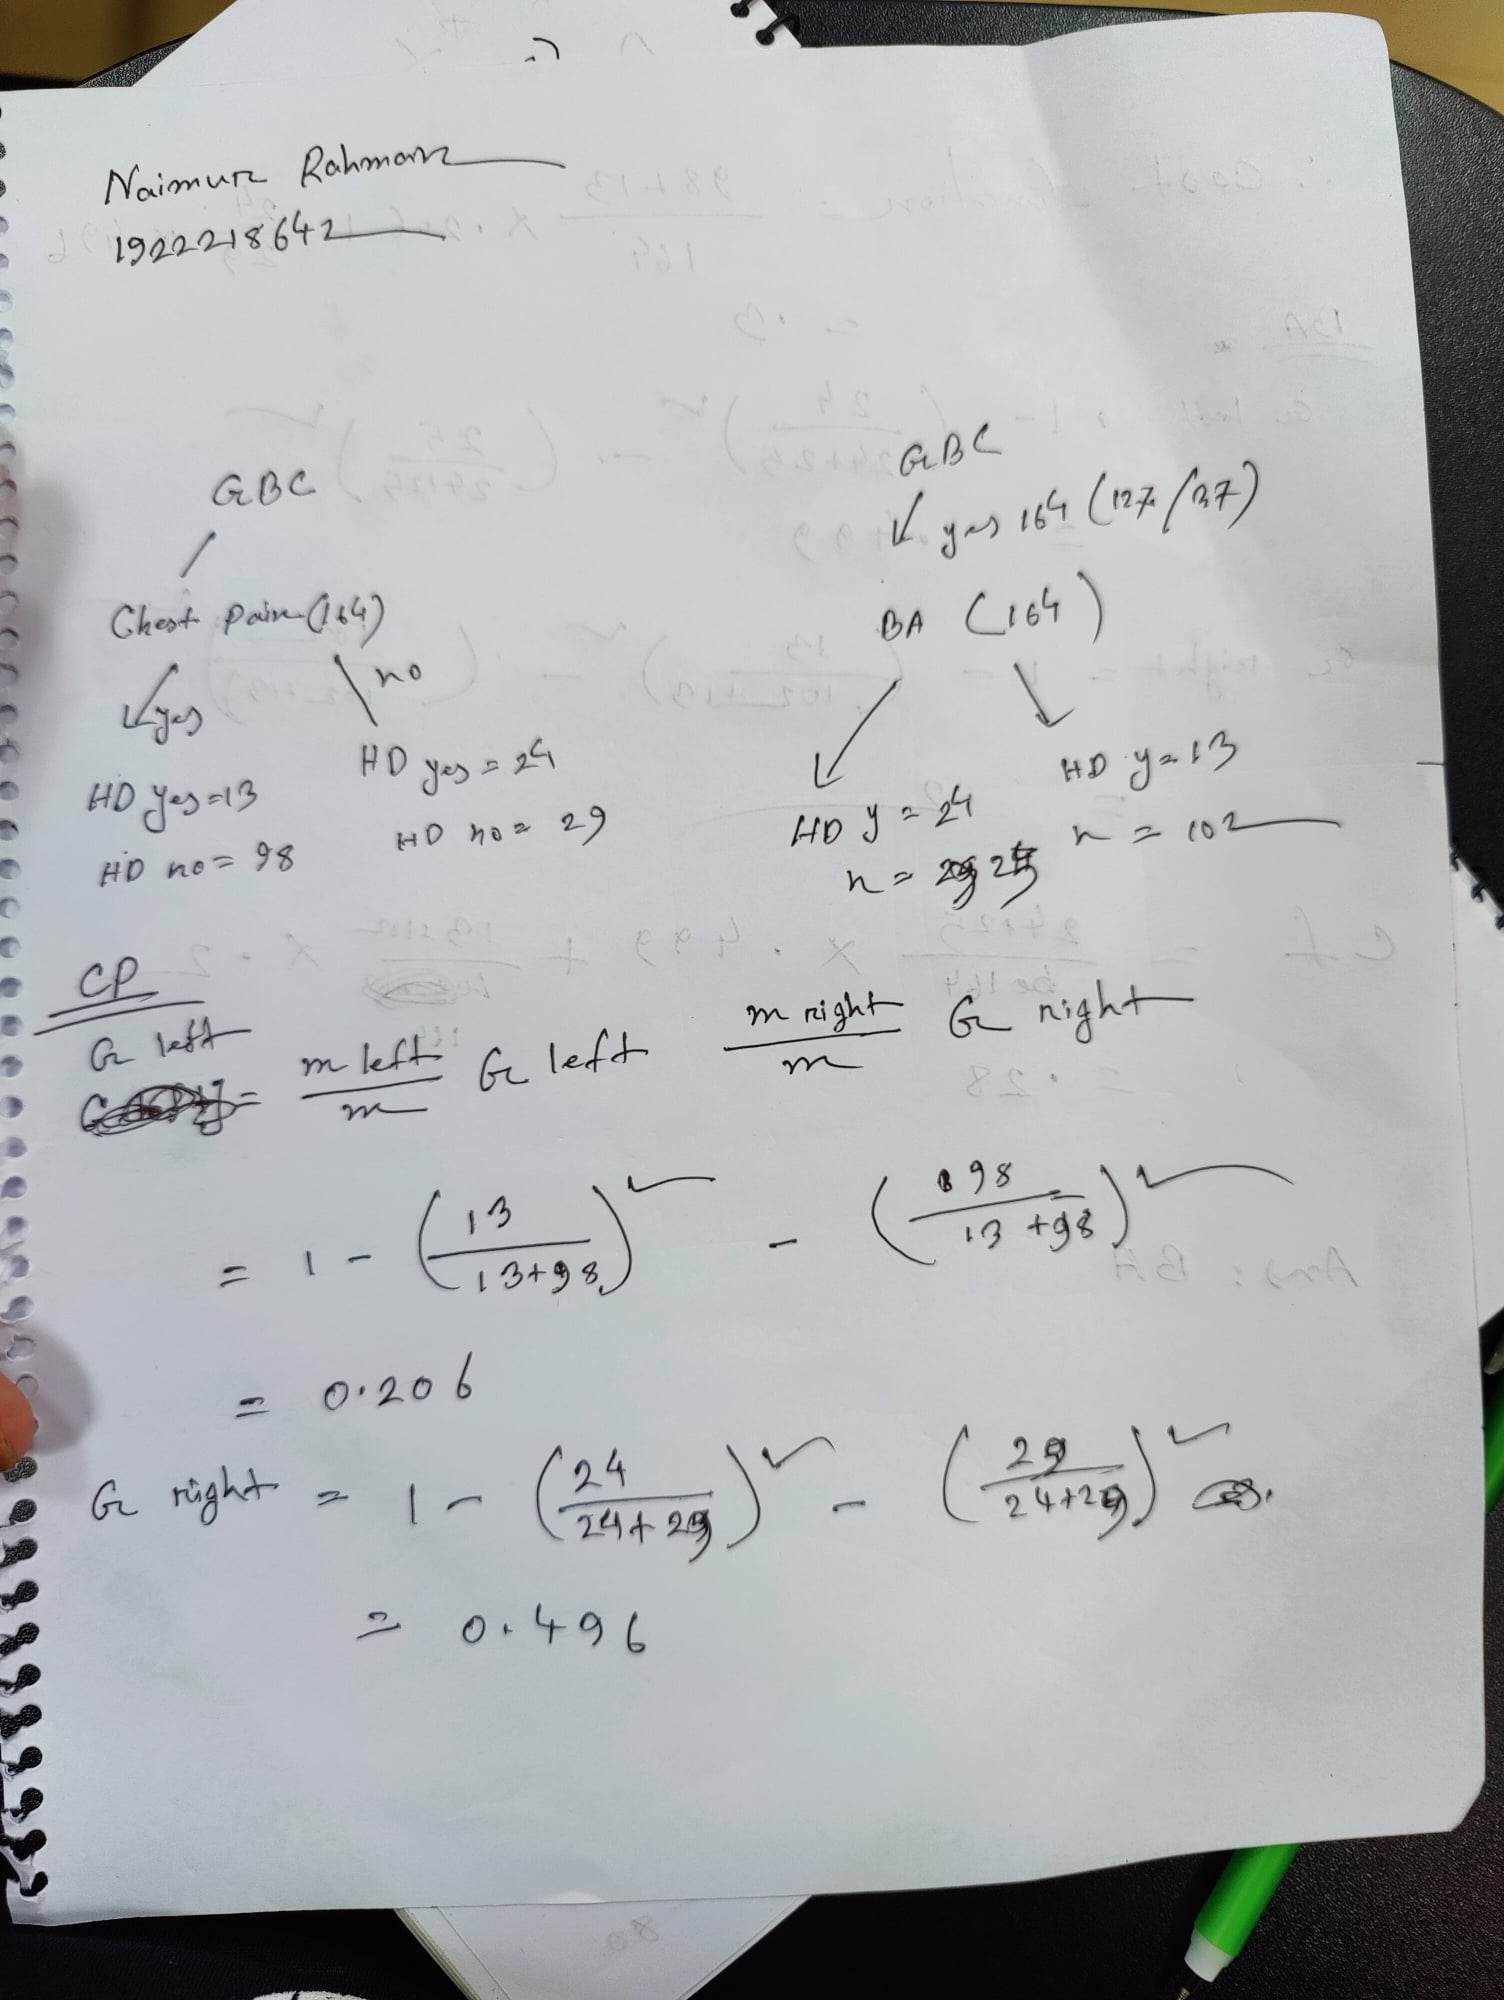 Naimur Rahman
1922218642
GBC
Chest Pain (164)
yes
no
HD yes=13
HD no= 98
HD yes = 24
HD no = 29
GBC
yes 164 (127/37)
BA (164)
HD y = 24
n = 25
HD y=13
n = 102
CP
G left
= m left/m G left m right/m G right
= 1 - (13/13+98)² - (98/13+98)²
= 0.206
G right = 1 - (24/24+29)² - (29/24+29)²
= 0.496